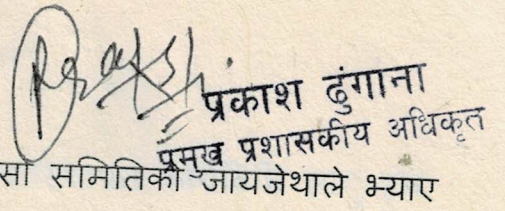 प्रकाश ढुंगाना
प्रमुख प्रशासकीय अधिकृत
सो समितिको जायजेथाले भ्याए